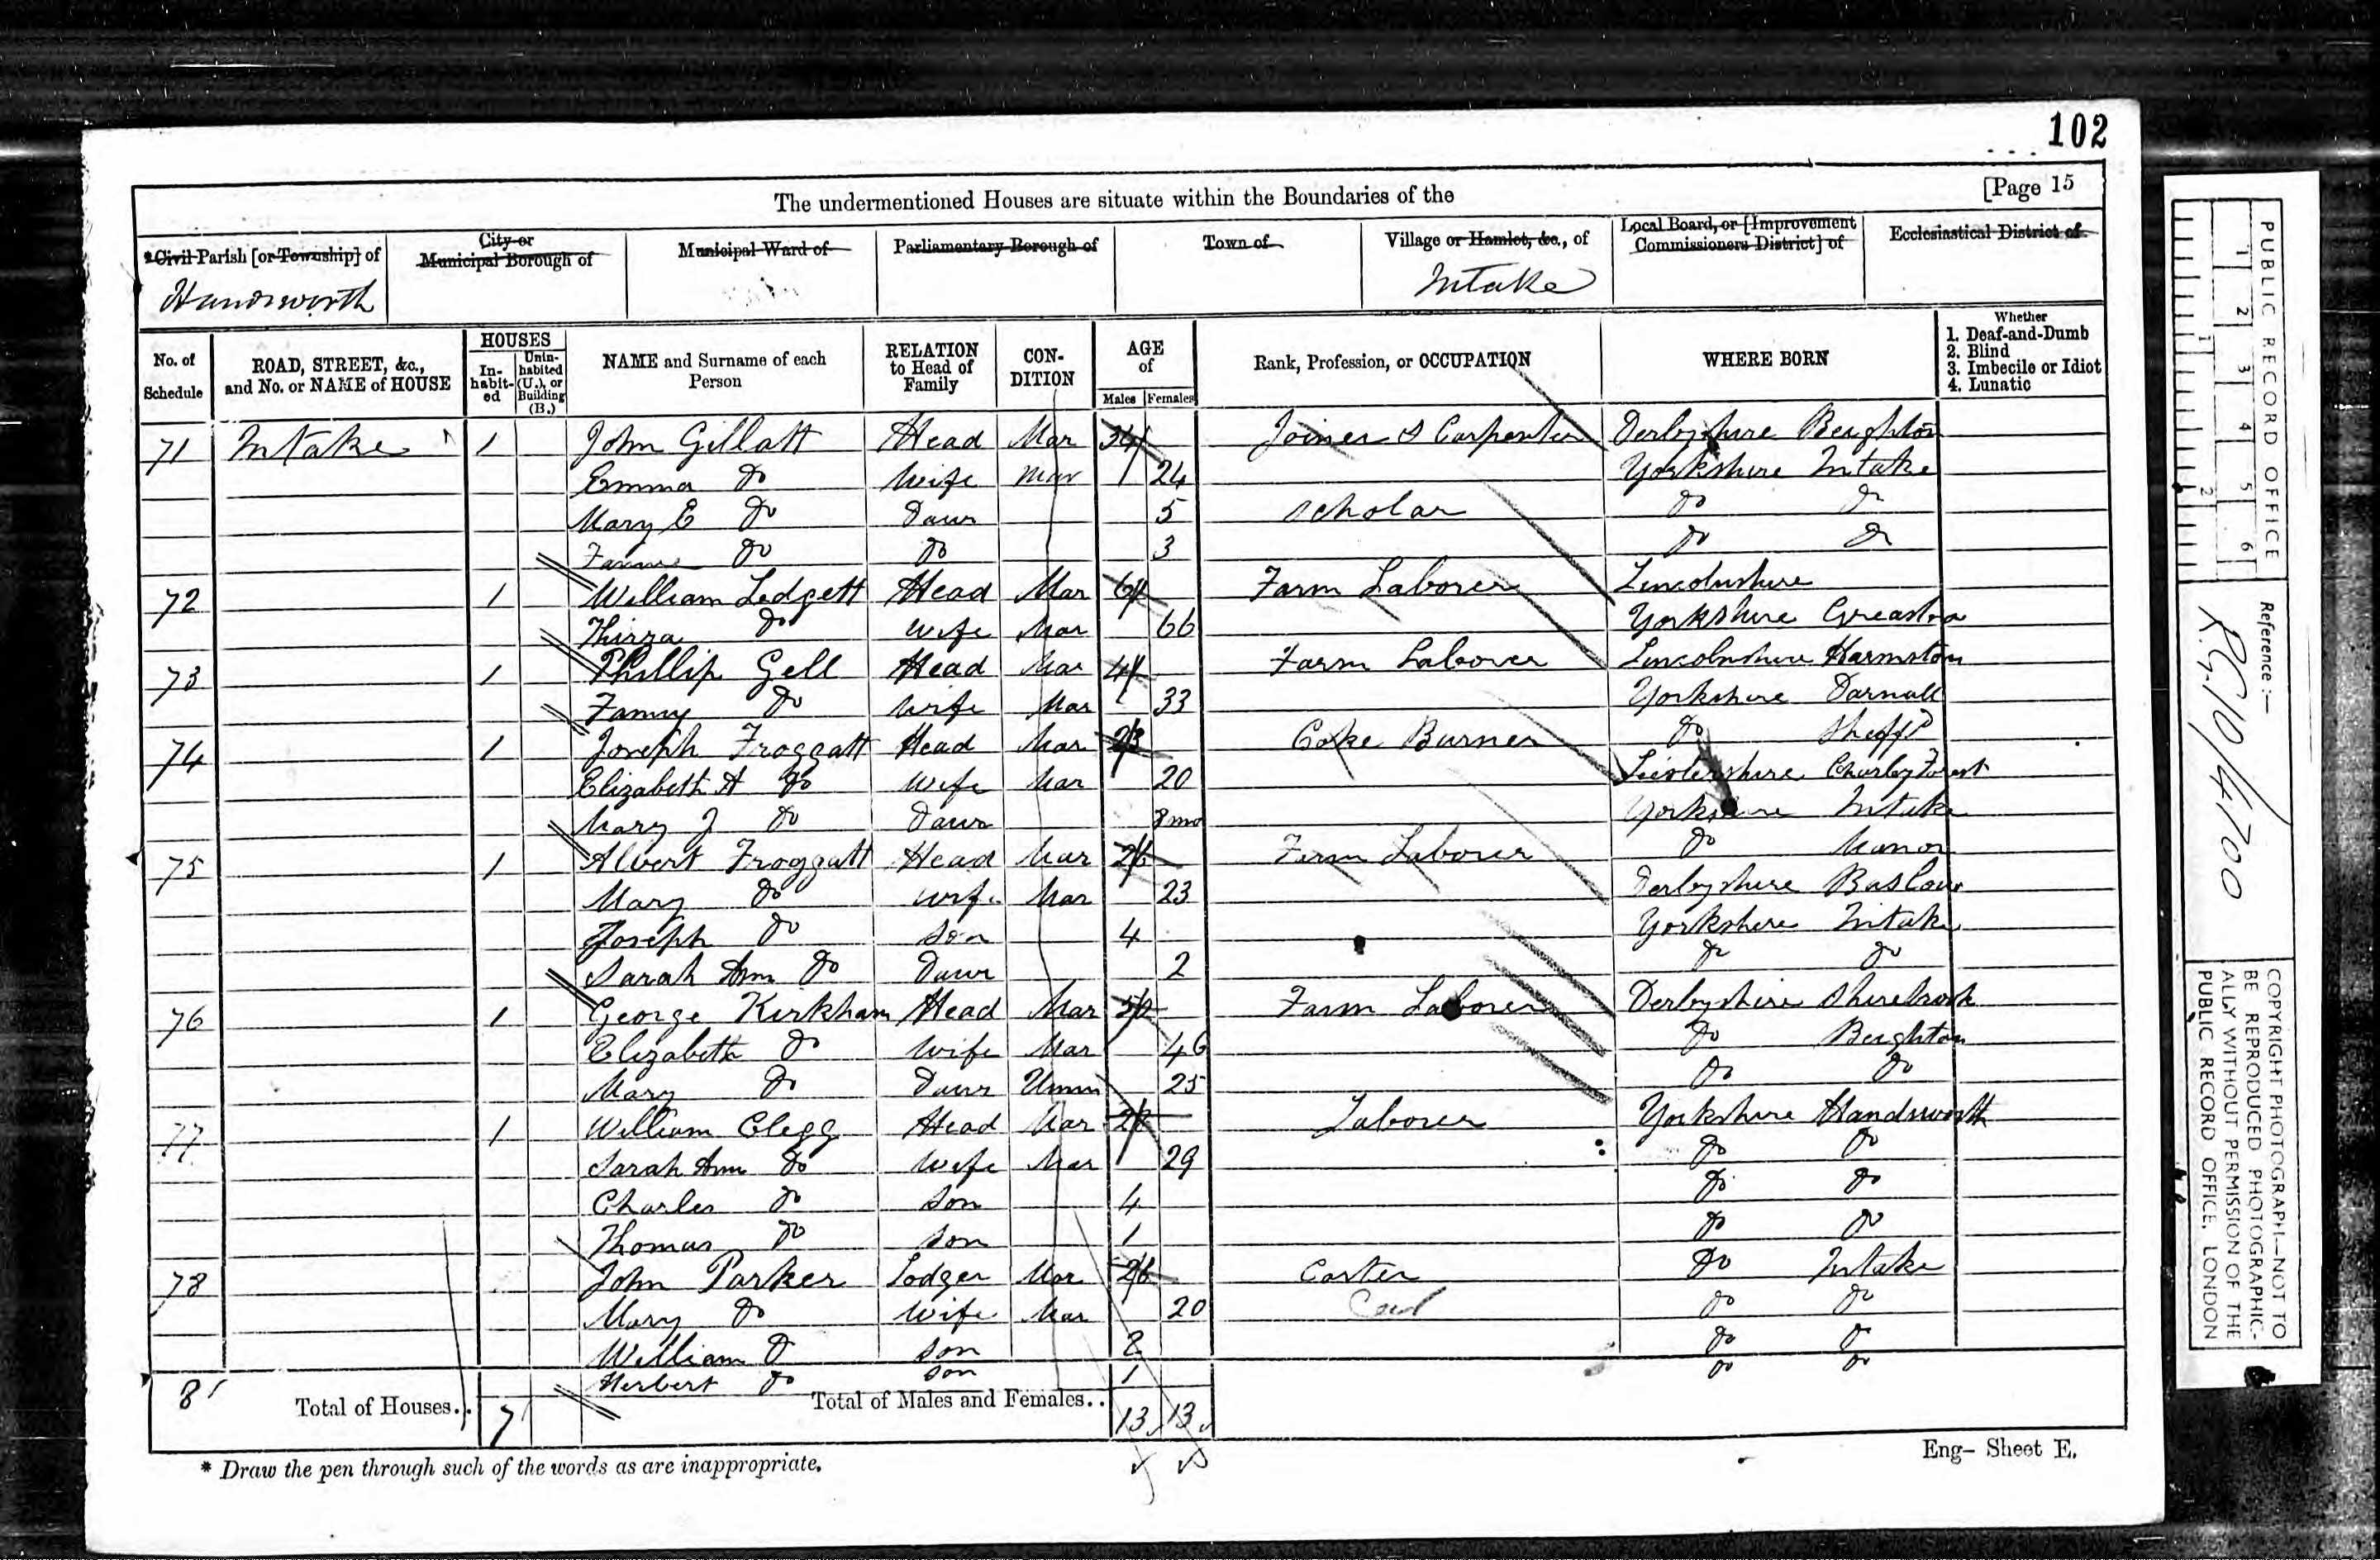 102
The undermentioned Houses are situate within the Boundaries of the [Page 15
*Civil Parish [or Township] of
City or Municipal Borough of
Municipal Ward of
Parliamentary Borough of
Town of
Village or Hamlet, &c., of
Local Board, or [Improvement Commissioners District] of
Ecclesiastical District of
Handsworth Intake
No. of Schedule
ROAD, STREET, &c., and No. or NAME of HOUSE
HOUSES
In-habit-ed
Unin-habited (U.), or Building (B.)
NAME and Surname of each Person
RELATION to Head of Family
CON-DITION
AGE of
Males Females
Rank, Profession, or OCCUPATION
WHERE BORN
Whether
1. Deaf-and-Dumb
2. Blind
3. Imbecile or Idiot
4. Lunatic
71 Intake 1 John Gillatt Head Mar 34 Joiner & Carpenter Derbyshire Beighton
Emma Do Wife Mar 24 Yorkshire Intake
Mary E Do Daur 5 Scholar Do Do
Do Do 3 Do Do
72 1 William Ledgett Head Mar Farm Laborer Lincolnshire
Thirza Do Wife Mar 66 Yorkshire
73 1 Phillip Gell Head Mar Farm Laborer Lincolnshire Harmston
Fanny Do Wife Mar 33 Yorkshire Darnall
74 1 Joseph Froggatt Head Mar 23 Coke Burner Do Sheffd
Elizabeth A Do Wife Mar 20 Leicestershire Charley Forest
Mary J Do Daur mo Yorkshire Intake
75 1 Albert Froggatt Head Mar 26 Farm Laborer Do Manor
Mary Do Wife Mar 23 Derbyshire Baslow
Joseph Do Son 4 Yorkshire Intake
Sarah Ann Do Daur 2 Do Do
76 1 George Kirkham Head Mar 50 Farm Laborer Derbyshire Shirebrook
Elizabeth Do Wife Mar 46 Do Beighton
Mary Do Daur Unm 25 Do Do
77 1 William Clegg Head Mar Laborer Yorkshire Handsworth
Sarah Ann Do Wife Mar 29 Do Do
Charles Do Son 4 Do Do
Thomas Do Son 1 Do Do
78 John Parker Lodger Mar 26 Carter Do Intake
Mary Do Wife Mar 20 Do Do
William Do Son 2 Do Do
Herbert Do Son 1 Do Do
8 Total of Houses.. 7 Total of Males and Females.. 13 13
* Draw the pen through such of the words as are inappropriate.
Eng- Sheet E.
PUBLIC RECORD OFFICE
1 2 3 4 5 6
1 2
Reference :-
R.G. 10/4700
COPYRIGHT PHOTOGRAPH—NOT TO
BE REPRODUCED PHOTOGRAPHIC-
ALLY WITHOUT PERMISSION OF THE
PUBLIC RECORD OFFICE, LONDON